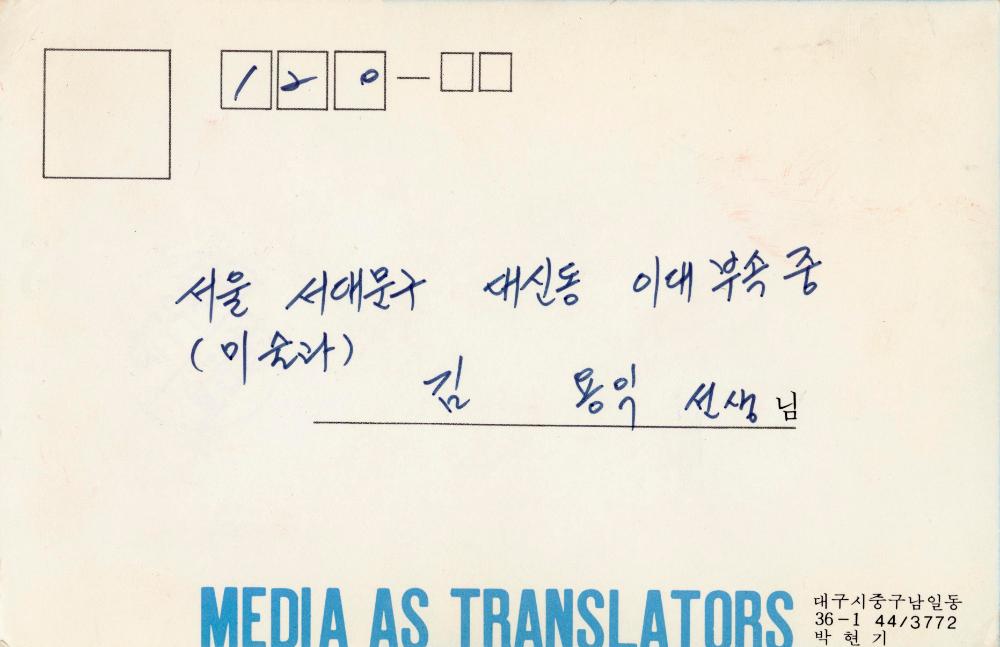 120-
서울 서대문구 대신동 이대 부속 중
(미술과)
김 용익 선생님
MEDIA AS TRANSLATORS
대구시중구남일동
36-1 44/3772
박 현 기